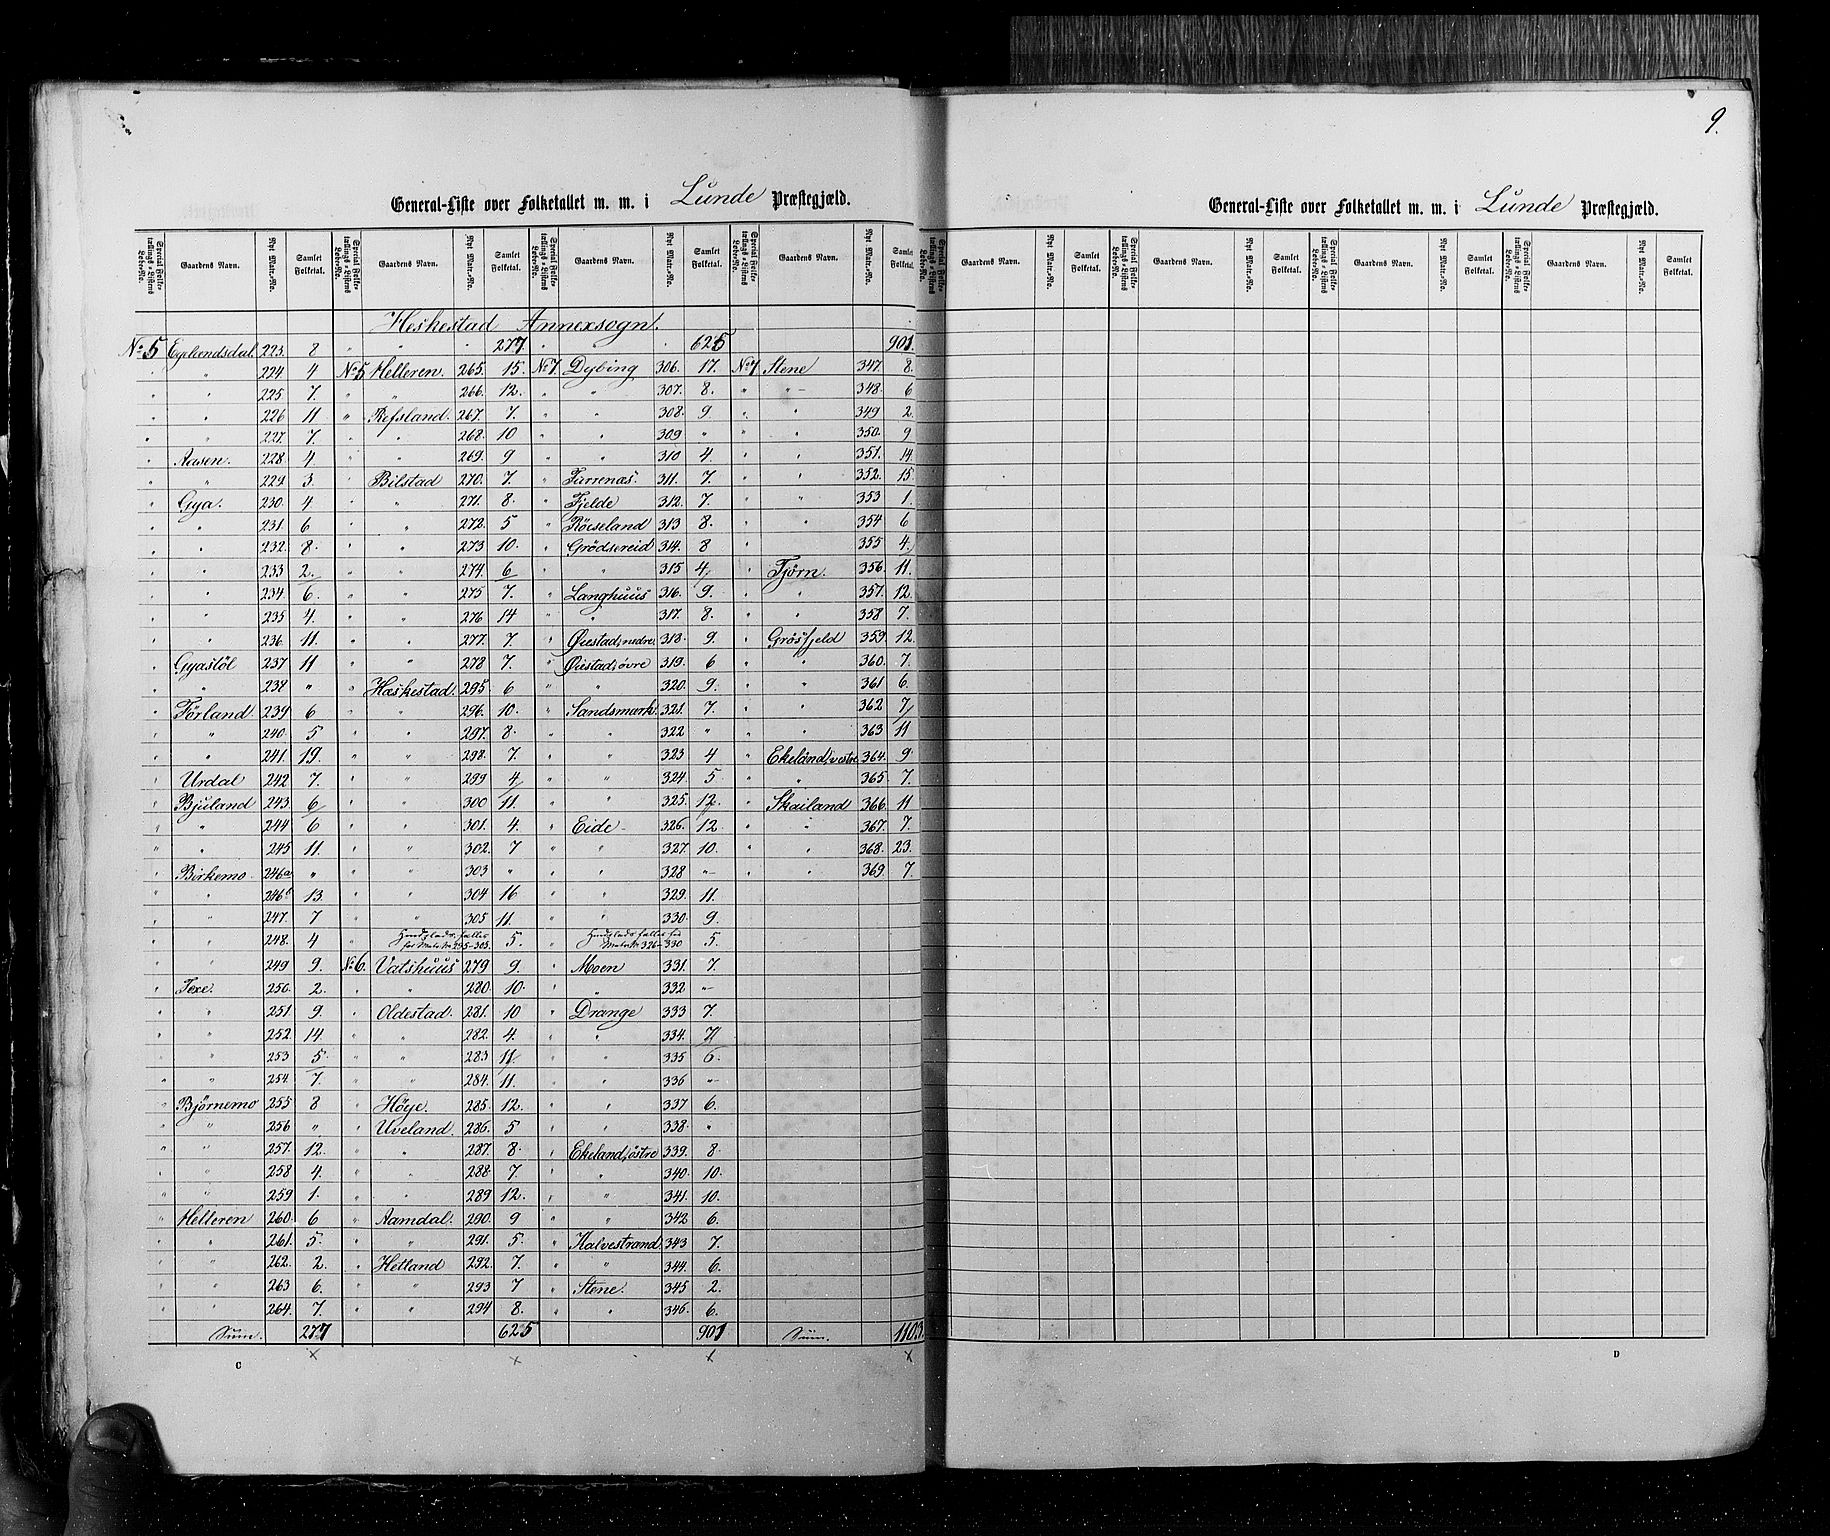 9.
General-Liste over Folketallet m. m. i Lunde Præstegjæld.
General-Liste over Folketallet m. m. i Lunde Præstegjæld.
Special Folketællings-Listens Løbe-No. Gaardens Navn. Nyt Matr.-No. Samlet Folketal. Special Folketællings-Listens Løbe-No. Gaardens Navn. Nyt Matr.-No. Samlet Folketal. Special Folketællings-Listens Løbe-No. Gaardens Navn. Nyt Matr.-No. Samlet Folketal. Special Folketællings-Listens Løbe-No. Gaardens Navn. Nyt Matr.-No. Samlet Folketal.
Special Folketællings-Listens Løbe-No. Gaardens Navn. Nyt Matr.-No. Samlet Folketal. Special Folketællings-Listens Løbe-No. Gaardens Navn. Nyt Matr.-No. Samlet Folketal. Special Folketællings-Listens Løbe-No. Gaardens Navn. Nyt Matr.-No. Samlet Folketal. Special Folketællings-Listens Løbe-No. Gaardens Navn. Nyt Matr.-No. Samlet Folketal.
Heskestad Annexsogn.
No 5 223. 8 " " " 277 " " " 625 901.
" " 224 4 No 5 Helleren. 265. 15. No 7 Dybing 306. 17. No 7 Stene 347. 8.
" " 225 7. " " 266. 12. " " 307. 8. " "- 348. 6
" " 226 11 " Refsland. 267. 7. " " 308. 9 " " 349 2.
" " 227. 7. " " 268. 10 " " 309 " " " 350. 9
" Aasen. 228. 4. " " 269. 9 " " 310 4. " " 351. 14.
" " 229 3. " Bilstad 270. 7. " Furrenæs. 311. 7. " " 352. 15.
" Gya. 230. 4 " " 271. 8. " Fjelde 312. 7. " " 353 1.
" " 231. 6 " " 272. 5 " Röiseland 313 8. " " 354 6
" " 232. 8. " " 273 10. " Grödsereid 314. 8 " " 355 4.
" " 233 2. " " 274. 6 " " 315 4. " Tjörn. 356. 11.
" " 234. 6. " " 275 7. " Langhuus 316. 9. " " 357. 12.
" " 235 4. " " 276 14 " " 317. 8. " " 358 7.
" " 236. 11. " " 277. 7. " Øiestad, nedre 318. 9. " Grösfjeld 359. 12.
" Gyastöl 237 11 " " 278 7. " Øiestad, övre 319. 6 " " 360. 7.
" " 238 " " Hæskestad. 295. 6 " " 320. 9. " " 361 6.
" Förland. 239 6 " " 296. 10. " Sandsmark. 321. 7. " " 362 7.
" " 240. 5 " " 297. 8. " " 322 " " " 363 11
" " 241. 19. " " 298. 7. " " 323 4 " Ekeland, vestre 364. 9
" Urdal 242 7. " " 299 4. " " 324. 5 " " 365 7.
" Bjuland 243. 6 " " 300 11. " " 325. 12. " Skailand 366. 11
" " 244 6 " " 301. 4. " Eide 326. 12 " " 367. 7.
" " 245 11. " " 302. 7 " " 327. 10. " " 368. 23.
" Birkemo 246a " " " 303 " " " 328 "- " " 369. 7.
" " 246b 13. " " 304 16 " " 329. 11.
" " 247. 7 " " 305 11. " " 330. 9.
" " 248. 4 " Huusplads. fælles for Matr. N. 295-305. 5. " Huusplads fælles for Matr. N 326-330 5.
" " 249 9. No 6. Vatshuus 279 9. " Moen 331. 7.
" Texe. 250. 2. " " 280. 10. " " 332 "-
" " 251 9. " Oldestad. 281. 10 " Drange 333 7.
" " 252. 14. " " 282. 4. " " 334. 7.
" " 253 5 " " 283 11. " " 335 6.
" " 254. 7. " " 284. 11. " " 336 "-
" Björnemo 255 8 " Höye. 285. 12. " " 337 6.
" " 256 " " Uveland. 286. 5 " " 338. "
" " 257. 12. " " 287. 8. " Ekeland, östre 339. 8
" " 258 4. " " 288. 7 " " 340. 10.
" " 259 1. " " 289 12. " " 341. 10.
" Helleren 260. 6 " Aamdal. 290. 9 " " 342 6.
" " 261. 5. " " 291. 5. " Kalvestrand 343 7.
" " 262. 2. " Hetland 292. 7. " " 344. 6.
" " 263 6. " " 293 7 " Stene. 345 2.
" " 264. 7. " " 294 8. " " 346. 6.
Sum. 277 625 901 Sum. 1103
x x x x
C D